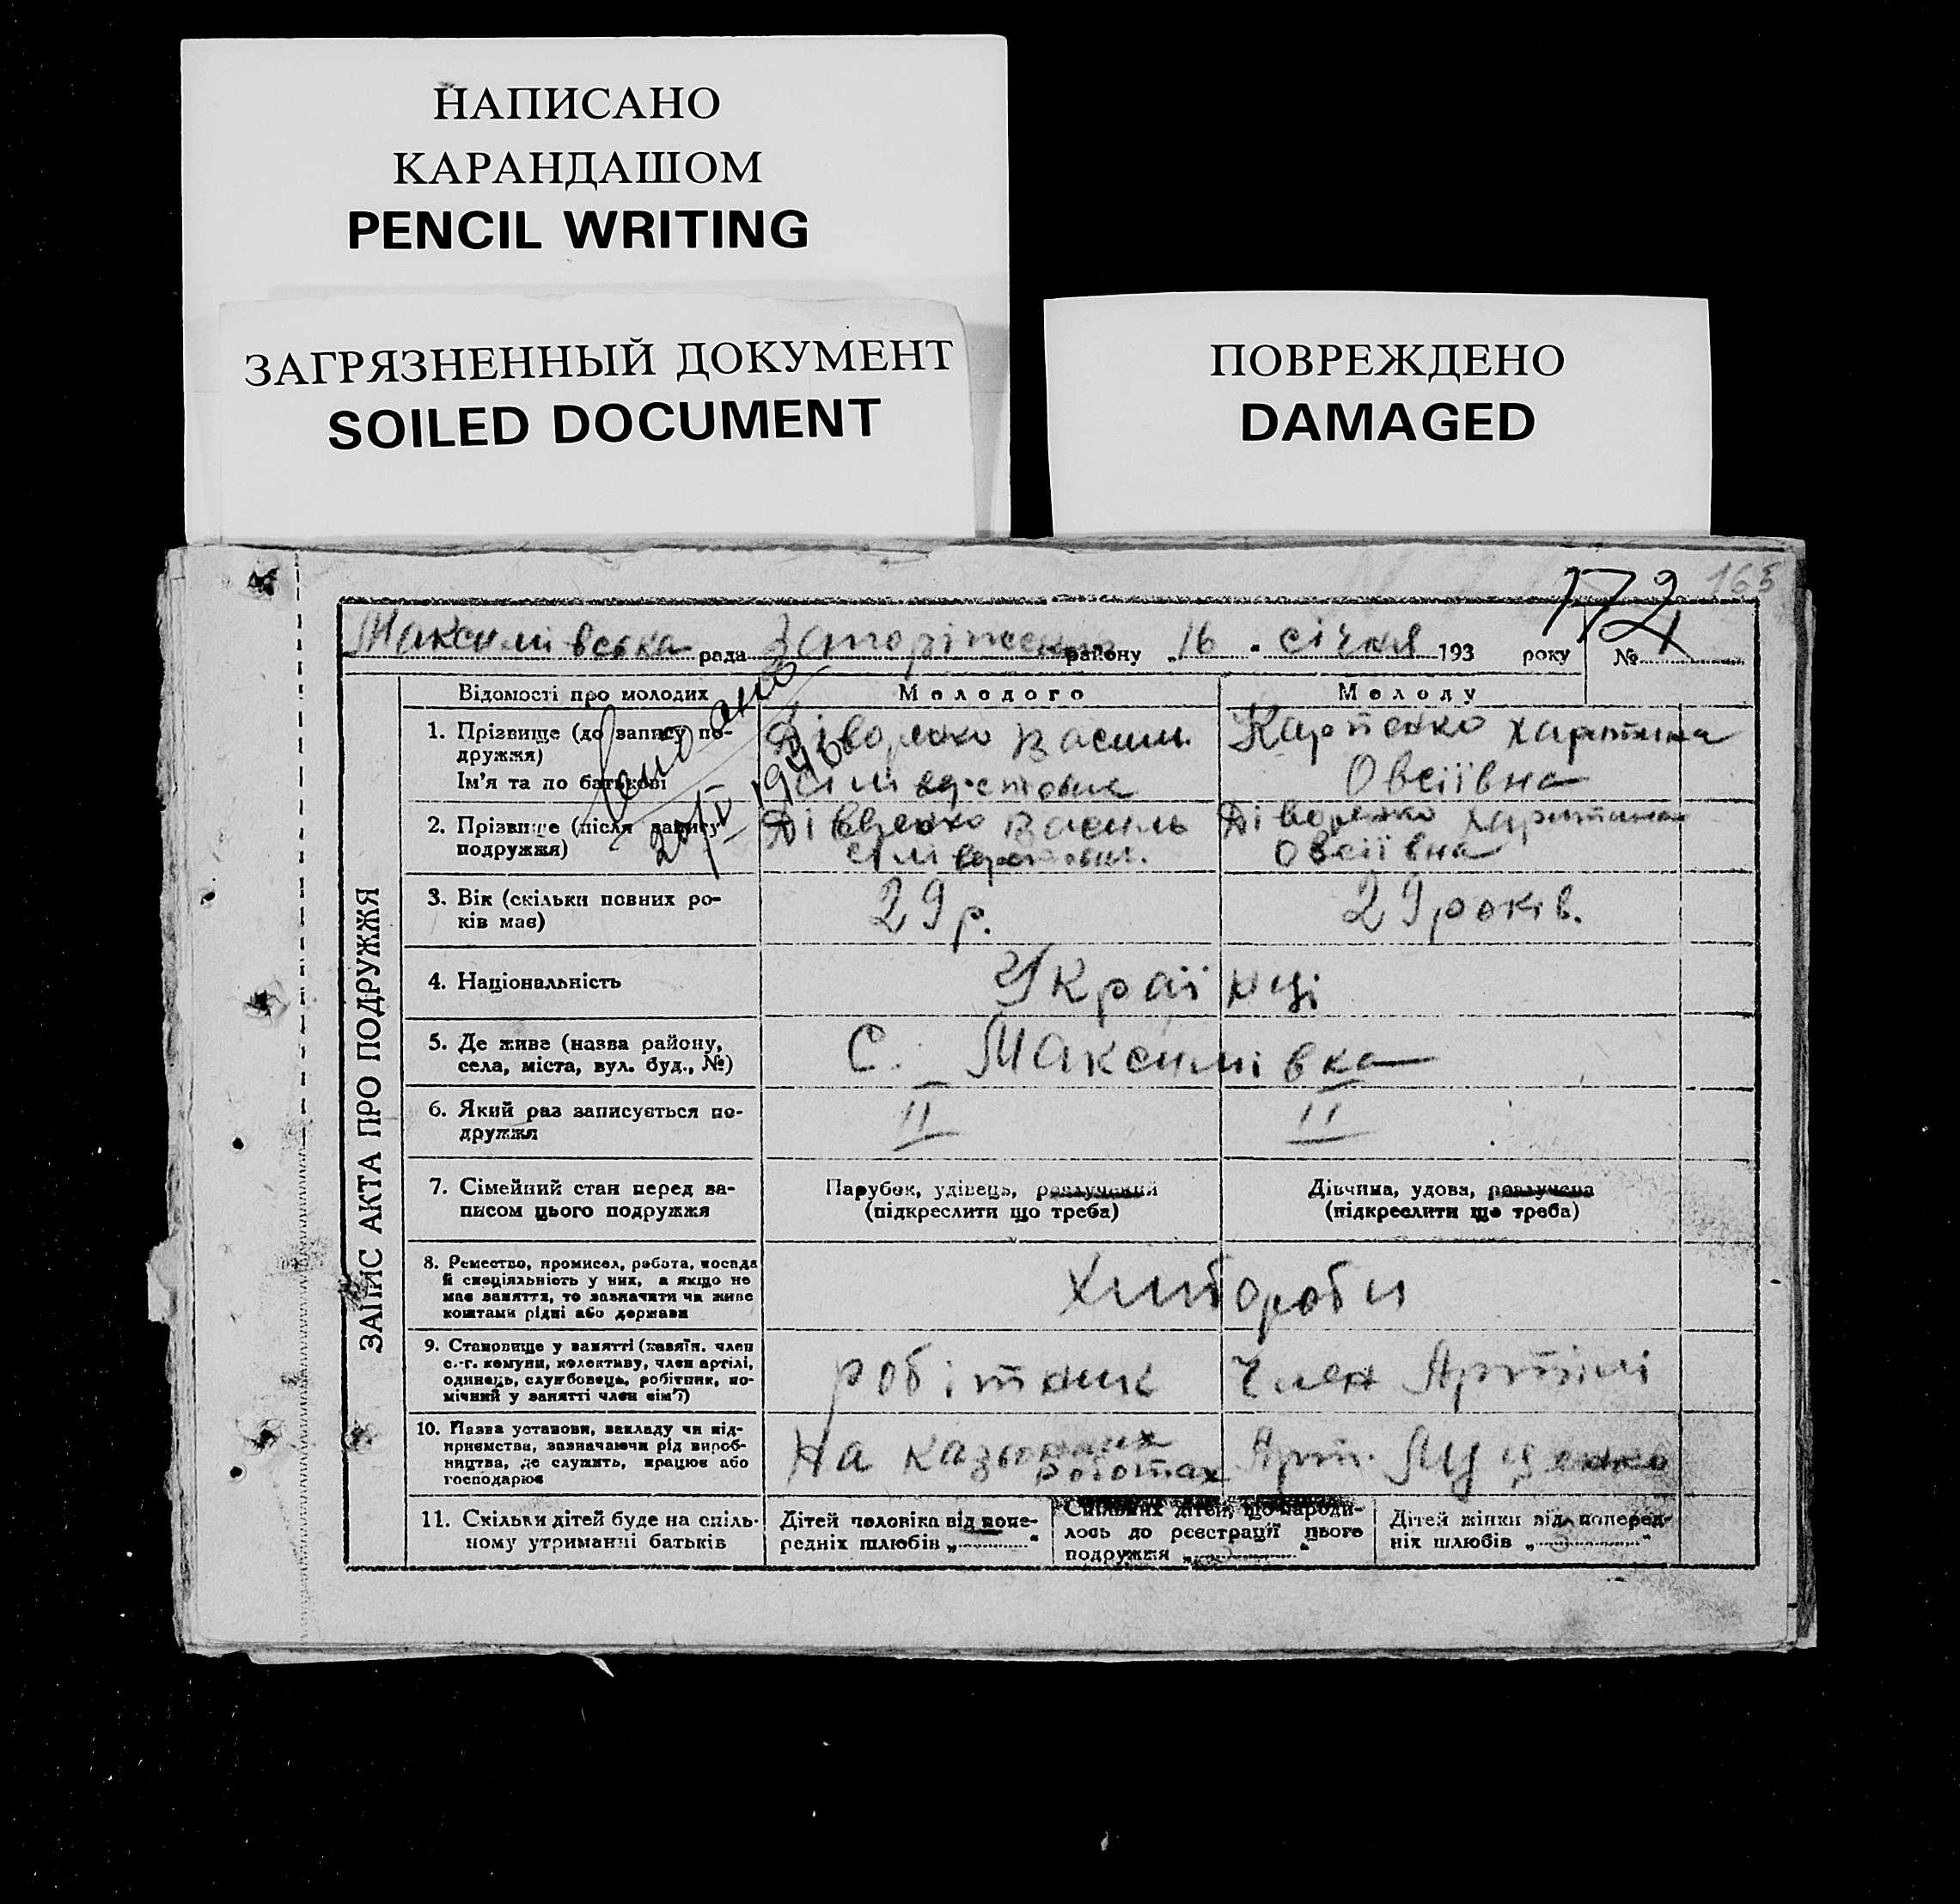 НАПИСАНО
КАРАНДАШОМ
PENCIL WRITING
ЗАГРЯЗНЕННЫЙ ДОКУМЕНТ
SOILED DOCUMENT
ПОВРЕЖДЕНО
DAMAGED
172 165
Максимівська рада району „16 " січня 193 року №
ЗАПИС АКТА ПРО ПОДРУЖЖЯ
Відомості про молодих Молодого Молоду
1. Прізвище (до запису по-
дружжя)
Ім'я та по батькові
Карпенко Харитина
Овсіївна
20/V 1946
2. Прізвище (після запису
подружжя)
Василь
Харитина
Овсіївна
3. Вік (скільки повних ро-
ків має)
29 р. 29 років.
4. Національність
Українці
5. Де живе (назва району,
села, міста, вул. буд., №)
С. Максимівка
6. Який раз записується по-
дружжя
II II
7. Сімейний стан перед за-
писом цього подружжя
Парубок, удівець, розлучений
(підкреслити що треба)
Дівчина, удова, розлучена
(підкреслити що треба)
8. Ремество, промисел, робота, посада
й спеціяльність у них, а якщо не
має заняття, то зазначити чи живе
коштами рідні або держави
Хлібороби
9. Становище у занятті (хазяїн. член
с.-г. комуни, колективу, член артілі,
одинець, службовець, робітник, по-
мічний у занятті член сім'ї)
робітник Член Артілі
10. Назва установи, закладу чи під-
приємства, зазначаючи рід вироб-
ництва, де служить, працює або
господарює
На казьонних
роботах
Арт.
11. Скільки дітей буде на спіль-
ному утриманні батьків
Дітей чоловіка від попе-
редніх шлюбів „ "
Спільних дітей, що народи-
лось до реєстрації цього
подружжя „ "
Дітей жінки від поперед-
ніх шлюбів „ "